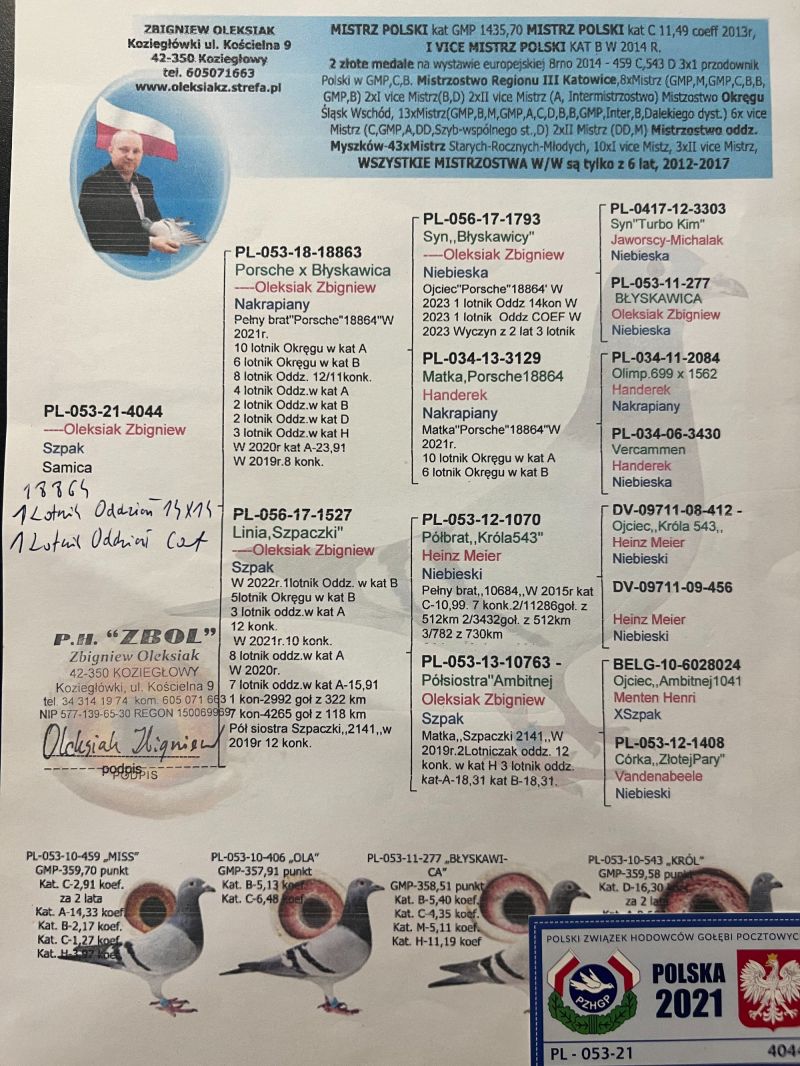 ZBIGNIEW OLEKSIAK
Koziegłówki ul. Kościelna 9
42-350 Koziegłowy
tel. 605071663
www.oleksiakz.strefa.pl
MISTRZ POLSKI kat GMP 1435,70 MISTRZ POLSKI kat C 11,49 coeff 2013r,
I VICE MISTRZ POLSKI KAT B W 2014 R.
2 złote medale na wystawie europejskiej Brno 2014 - 459 C,543 D 3x1 przodownik
Polski w GMP,C,B. Mistrzostwo Regionu III Katowice,8xMistrz (GMP,M,GMP,C,B,B,
GMP,B) 2xI vice Mistrz(B,D) 2xII vice Mistrz (A, Intermistrzostwo) Mistzostwo Okręgu
Śląsk Wschód, 13xMistrz(GMP,B,M,GMP,A,C,D,B,B,GMP,Inter,B,Dalekiego dyst.) 6x vice
Mistrz (C,GMP,A,DD,Szyb-wspólnego st.,D) 2xII Mistrz (DD,M) Mistrzostwo oddz.
Myszków-43xMistrz Starych-Rocznych-Młodych, 10xI vice Mistz, 3xII vice Mistrz,
WSZYSTKIE MISTRZOSTWA W/W są tylko z 6 lat, 2012-2017
PL-053-21-4044
----Oleksiak Zbigniew
Szpak
Samica
18864
1 Lotnik Oddział 14x14
1 Lotnik Oddział Coef
P.H. "ZBOL"
Zbigniew Oleksiak
42-350 KOZIEGŁOWY
Koziegłówki, ul. Kościelna 9
tel. 34 314 19 74 kom. 605 071 663
NIP 577-139-65-30 REGON 150069969
Oleksiak Zbigniew
podpis
PODPIS
PL-053-18-18863
Porsche x Błyskawica
----Oleksiak Zbigniew
Nakrapiany
Pełny brat"Porsche"18864"W
2021r.
10 lotnik Okręgu w kat A
6 lotnik Okręgu w kat B
8 lotnik Oddz. 12/11konk.
4 lotnik Oddz.w kat A
2 lotnik Oddz.w kat B
2 lotnik Oddz.w kat D
3 lotnik Oddz.w kat H
W 2020r kat A-23,91
W 2019r.8 konk.
PL-056-17-1527
Linia,Szpaczki"
----Oleksiak Zbigniew
Szpak
W 2022r.1lotnik Oddz. w kat B
5lotnik Okręgu w kat B
3 lotnik oddz.w kat A
12 konk.
W 2021r.10 konk.
8 lotnik oddz.w kat A
W 2020r.
7 lotnik oddz.w kat A-15,91
1 kon-2992 goł z 322 km
7 kon-4265 goł z 118 km
Pół siostra Szpaczki,,2141,,w
2019r 12 konk.
PL-056-17-1793
Syn,,Błyskawicy"
----Oleksiak Zbigniew
Niebieska
Ojciec"Porsche"18864' W
2023 1 lotnik Oddz 14kon W
2023 1 lotnik Oddz COEF W
2023 Wyczyn z 2 lat 3 lotnik
PL-034-13-3129
Matka,Porsche18864
Handerek
Nakrapiany
Matka"Porsche"18864"W
2021r.
10 lotnik Okręgu w kat A
6 lotnik Okręgu w kat B
PL-053-12-1070
Półbrat,,Króla543"
Heinz Meier
Niebieski
Pełny brat,,10684,,W 2015r kat
C-10,99. 7 konk.2/11286goł. z
512km 2/3432goł. z 512km
3/782 z 730km
PL-053-13-10763 -
Półsiostra"Ambitnej
Oleksiak Zbigniew
Szpak
Matka,,Szpaczki 2141,,W
2019r.2Lotniczak oddz. 12
konk. w kat H 3 lotnik oddz.
kat-A-18,31 kat B-18,31.
PL-0417-12-3303
Syn"Turbo Kim"
Jaworscy-Michalak
Niebieska
PL-053-11-277
BŁYSKAWICA
Oleksiak Zbigniew
Niebieska
PL-034-11-2084
Olimp.699 x 1562
Handerek
Nakrapiany
PL-034-06-3430
Vercammen
Handerek
Niebieska
DV-09711-08-412 -
Ojciec,,Króla 543,,
Heinz Meier
Niebieski
DV-09711-09-456
Heinz Meier
Niebieski
BELG-10-6028024
Ojciec,,Ambitnej1041
Menten Henri
XSzpak
PL-053-12-1408
Córka,,ZłotejPary"
Vandenabeele
Niebieski
PL-053-10-459 „MISS"
GMP-359,70 punkt
Kat. C-2,91 koef.
za 2 lata
Kat. A-14,33 koef
Kat. B-2,17 koef.
Kat. C-1,27 koef
Kat. H-3,97 koef
PL-053-10-406 „OLA"
GMP-357,91 punkt
Kat. B-5,13 koef.
Kat. C-6,48 koef
PL-053-11-277 „BŁYSKAWI-
CA"
GMP-358,51 punkt
Kat. B-5,40 koef.
Kat. C-4,35 koef.
Kat. M-5,11 koef.
Kat. H-11,19 koef
PL-053-10-543 „KRÓL"
GMP-359,58 punkt
Kat. D-16,30 koef
za 2 lata
POLSKI ZWIĄZEK HODOWCÓW GOŁĘBI POCZTOWYCH
PZHGP
POLSKA
2021
PL - 053-21
4044